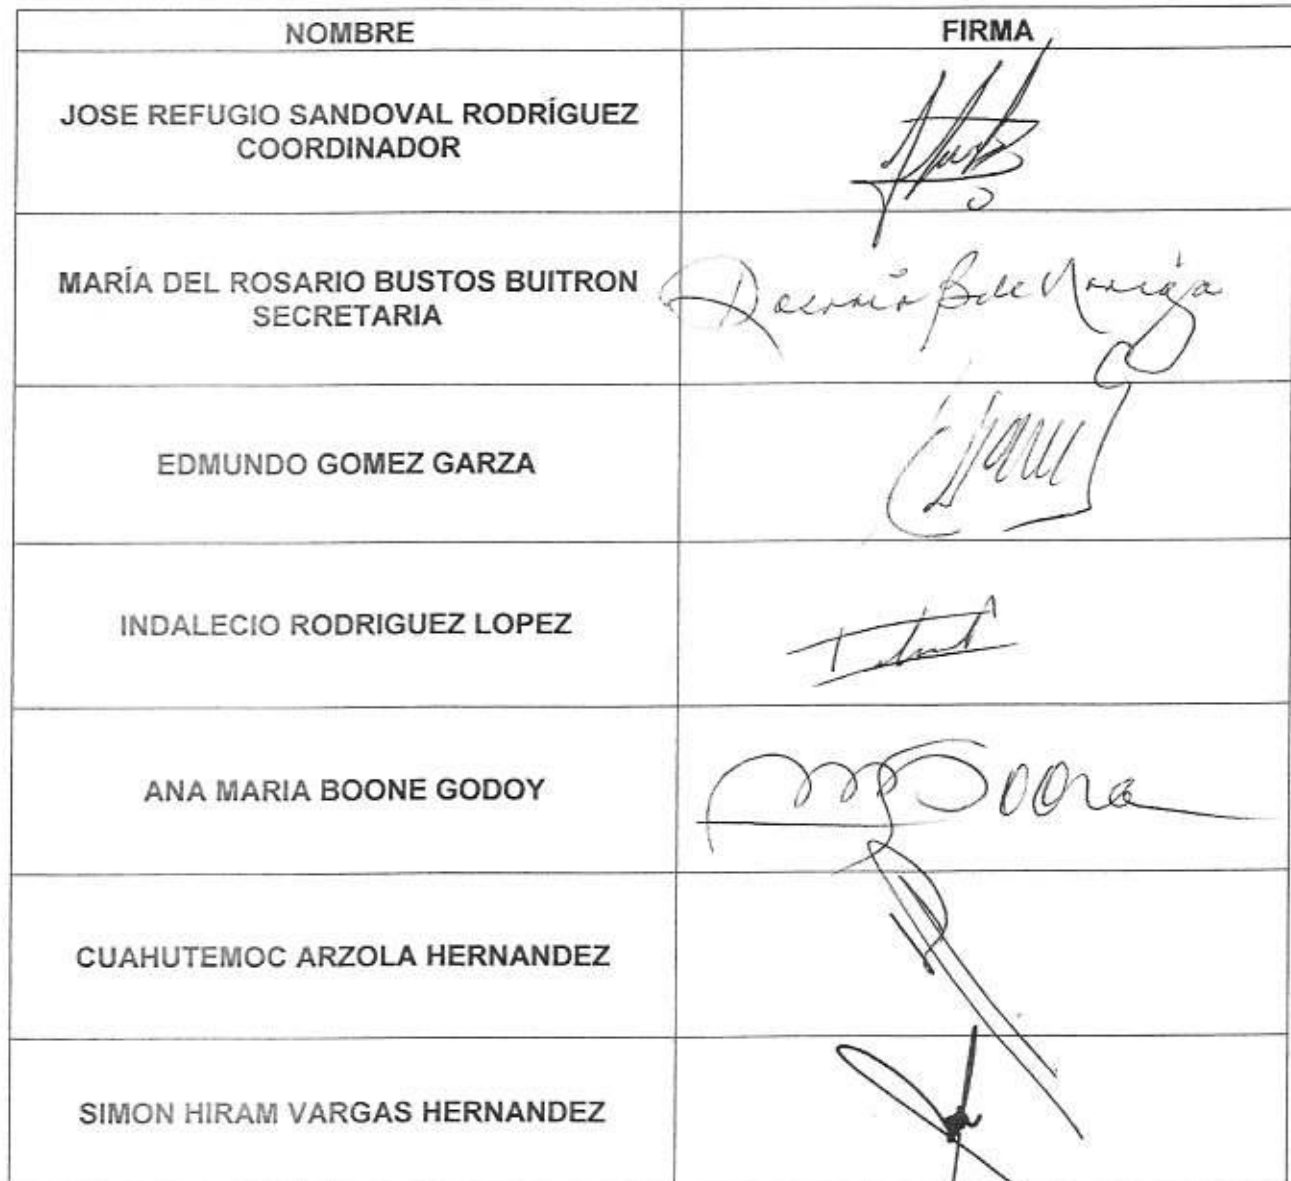 NOMBRE FIRMA
JOSE REFUGIO SANDOVAL RODRÍGUEZ
COORDINADOR
MARÍA DEL ROSARIO BUSTOS BUITRON
SECRETARIA
EDMUNDO GOMEZ GARZA
INDALECIO RODRIGUEZ LOPEZ
ANA MARIA BOONE GODOY
Boone
CUAHUTEMOC ARZOLA HERNANDEZ
SIMON HIRAM VARGAS HERNANDEZ